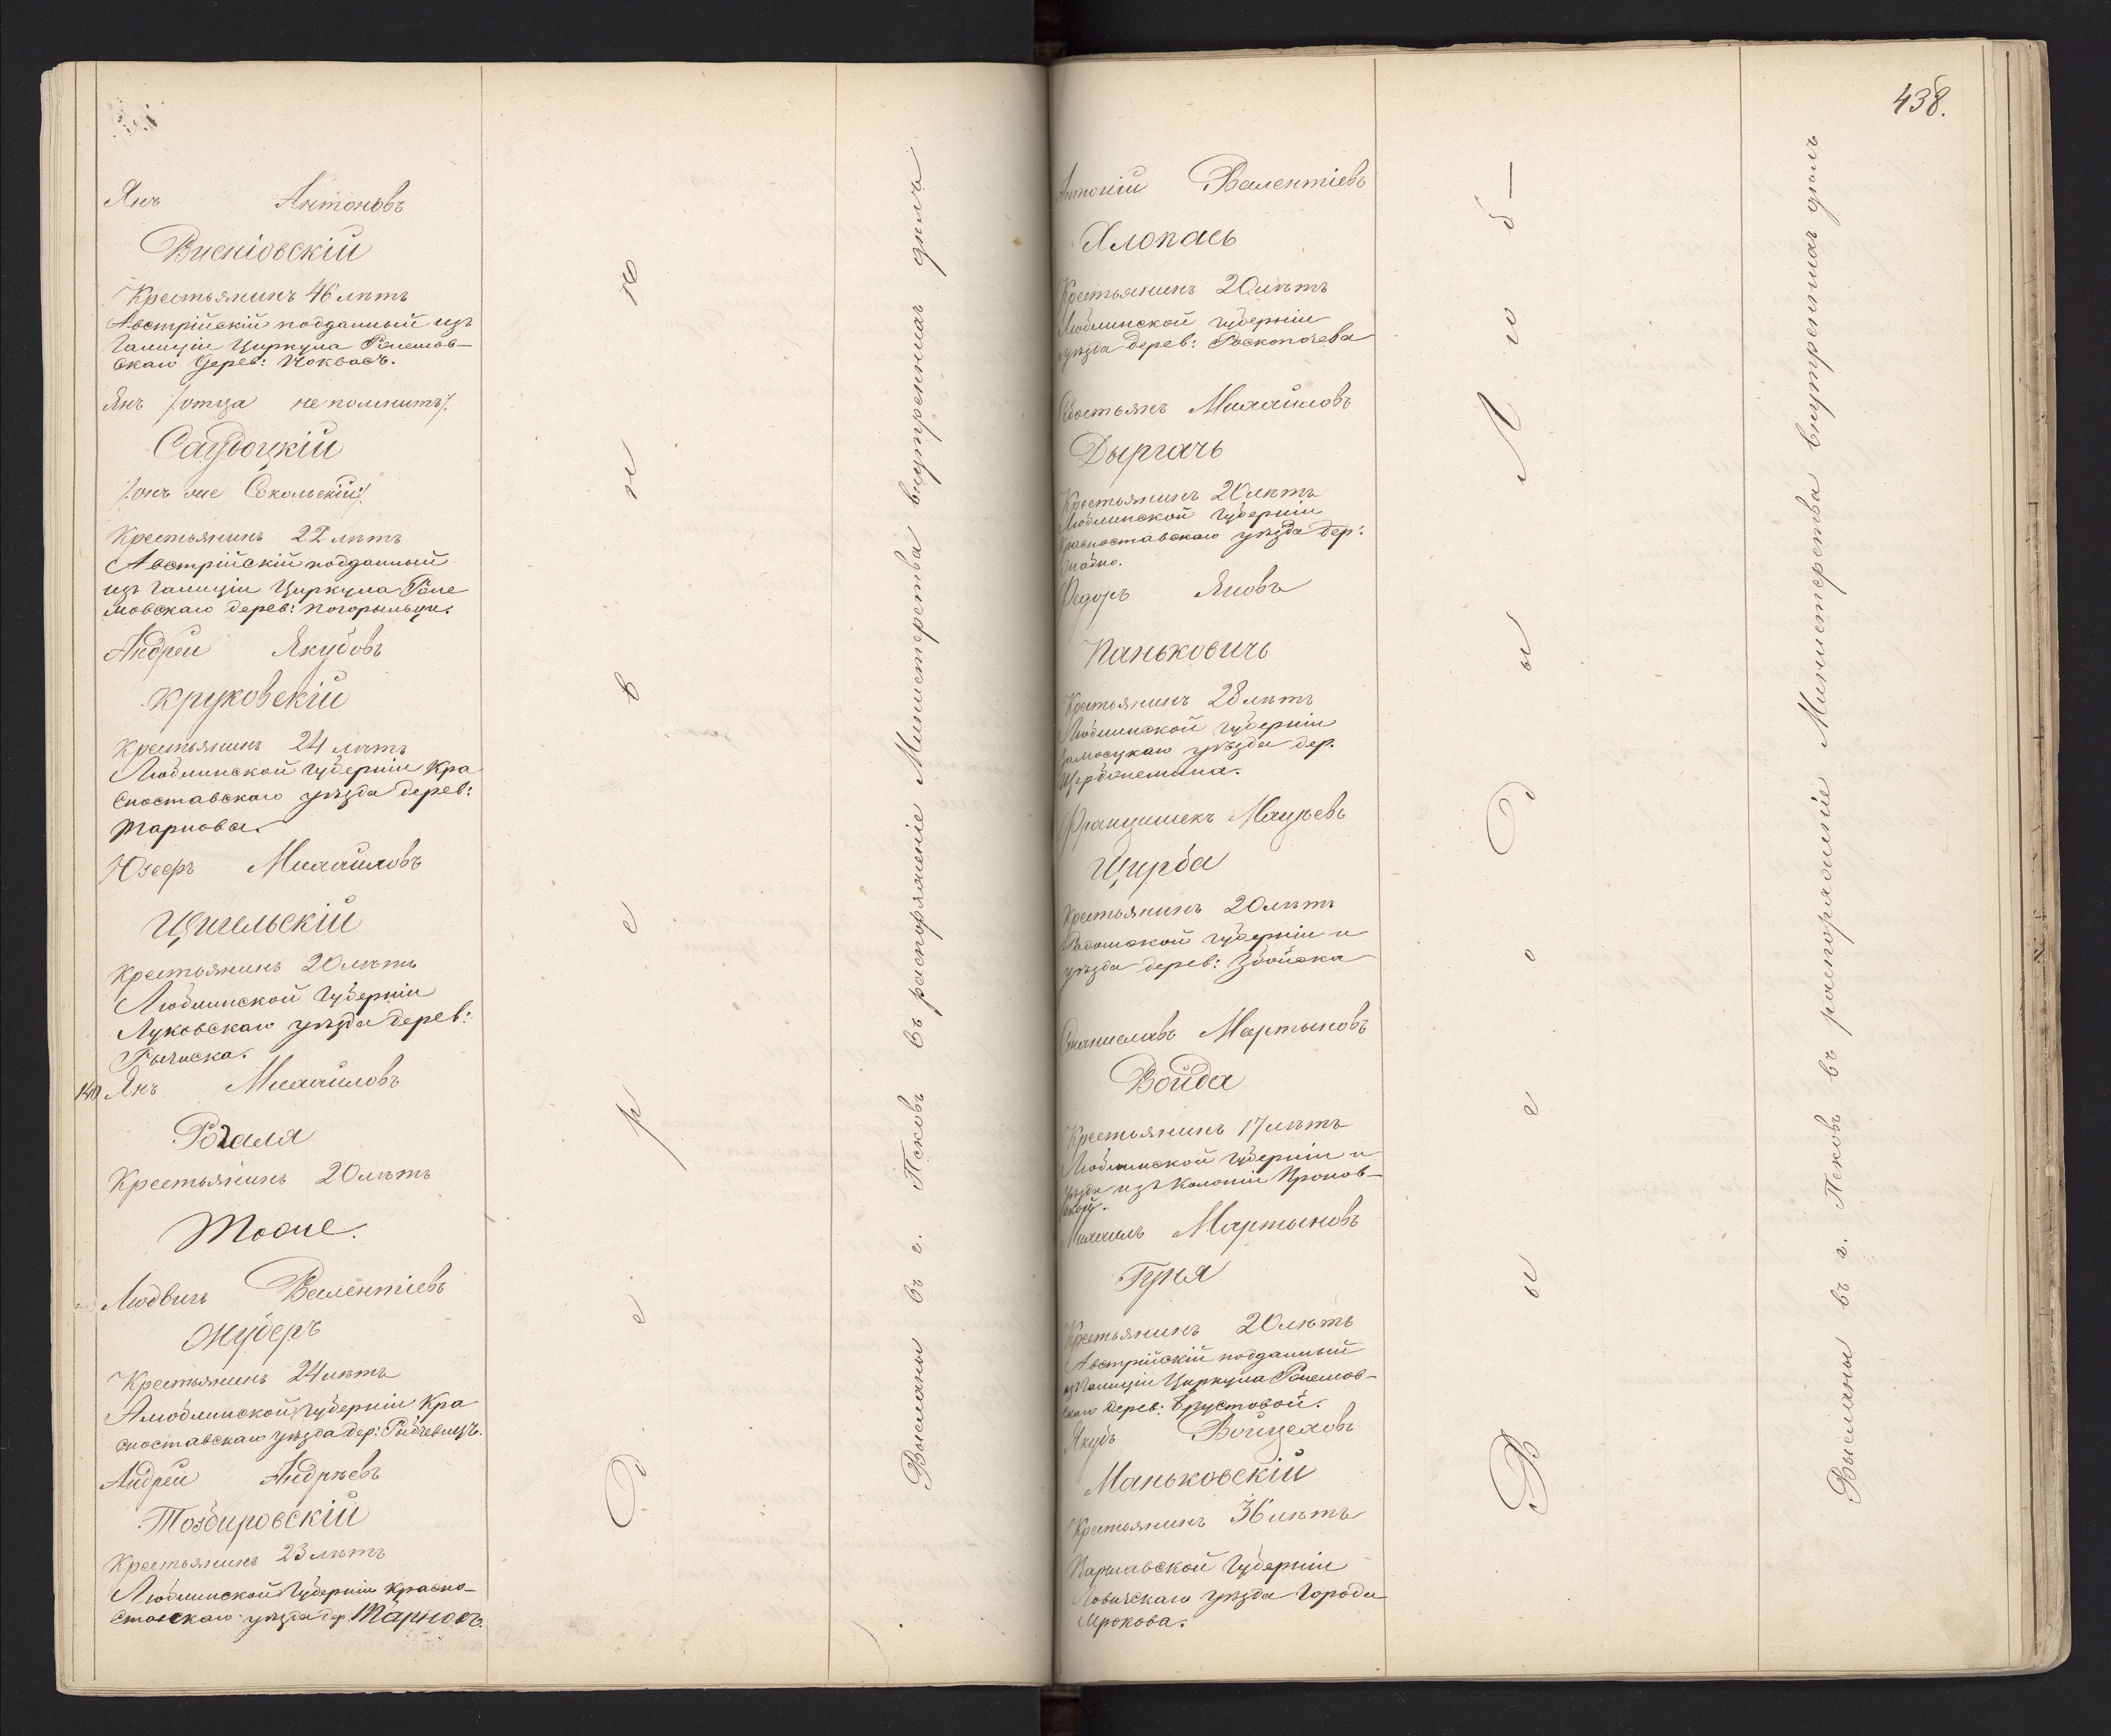 Янъ Антоновъ
Висніовскій
Крестьянинъ 46 лѣтъ
Австрійскій подданный изъ
Галиціи Циркула
скаго Дерев:
Янъ /:отца не помнитъ:/
/:онъ же Сокольскій:/
Крестьянинъ 22 лѣтъ
Австрійскій подданный
изъ Галиціи Циркула
дерев: Погорѣльцы.
Андрей Якубовъ
Круковскій
Крестьянинъ 24 лѣтъ
Люблинской Губерніи Кра
сноставскаго уѣзда дерев:
Тарнова.
Юзефъ Михайловъ
Цигельскій
Крестьянинъ 20 лѣтъ
Люблинской Губерніи
Луковскаго уѣзда дерев:
140 Янъ Михайловъ
Рогаля
Крестьянинъ 20 лѣтъ
Тоже.
Людвигъ Валентіевъ
Жуберъ
Крестьянинъ 24 лѣтъ
Люблинской Губерніи Кра
сноставскаго уѣзда дер:
Андрей Андреевъ
Крестьянинъ 23 лѣтъ
Люблинской Губерніи Красно-
ставскаго уѣзда д. Тарновъ.
Высланы въ г. Псковъ въ распоряженіе Министерства внутреннихъ дѣлъ
438.
Антоній Валентіевъ
Хлопась
Крестьянинъ 20 лѣтъ
Люблинской Губерніи
уѣзда дерев:
Михайловъ
Дыргачъ
Крестьянинъ 20 лѣтъ
Люблинской Губерніи
Красноставскаго уѣзда дер:
Федоръ Яновъ
Паньковичъ
Крестьянинъ 28 лѣтъ
Люблинской Губерніи
Замосцкаго уѣзда дер.
Францишекъ Мацѣевъ
Щирба
Крестьянинъ 20 лѣтъ
Радомской Губерніи и
уѣзда дерев: Збойска
Станиславъ Мартыновъ
Войда
Крестьянинъ 17 лѣтъ
Люблинской Губерніи и
уѣзда изъ Колоніи
Михаилъ Мартыновъ
Гуня
Крестьянинъ 20 лѣтъ
Австрійскій подданный
изъ Галиціи Циркула
скаго дерев: Брустовой.
Якубъ Войцеховъ
Маньковскій
Крестьянинъ 36 лѣтъ
Варшавской Губерніи
Ловичскаго уѣзда Города
Высланы въ г. Псковъ въ распоряженіе Министерства внутреннихъ дѣлъ